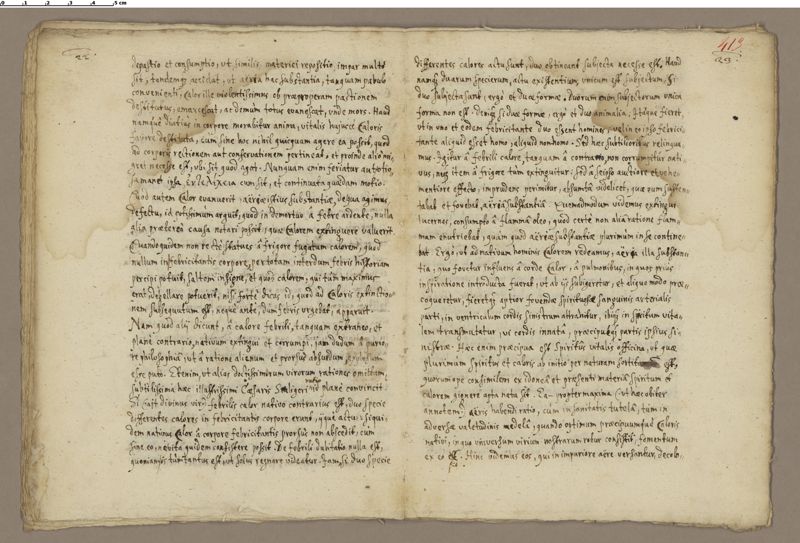 22
depastio et consumptio, ut similis materiei repositio impar multo
sit, tandemq aër hac substantia, tanquam pabulo
convenienti, Calor ille violentissimus ob præproperam pastionem
destitutus, emarcescat, ac demum totus evanescat, unde mors. Haud
namque diutius in corpore morabitur anima, vitalis hujusce Caloris
favore destituta, cum sine hoc nihil quicquam agere ea possit, quod
ad corporis rectionem aut conservationem pertineat, et proinde
necesse est, ubi sit quod agat. Nunquam enim feriatur
ipsa cum sit, et continuata quædam motio.
Quod autem Calor evanuerit aëreæ istius substantiæ, de qua agimus,
defectu, id potissimum arguit, quod in demortuo à febre ardente, nulla
alia præterea causa notari possit, quæ Calorem extinguere valuerit.
Quandoquidem non recte statuas à frigore fugatum calorem, quod
nullum in febricitantis corpore, per totam interdum febris historiam
percipi potuit, saltem insigne, et quod calorem, qui tum maximus
erat, depellare potuerit, nisi forte dicas id, quod ad Caloris extinctio-
nem subsequutum est, neque ante, dum febris urgebat, apparuit.
Nam quod alij dicunt, à calore febrili, tanquam extraneo, et
plane contrario, nativum extingui et corrumpi, jam dudum à purio-
re philosophia, ut à ratione alienum et prorsus absurdum
esse puto. Etenim, ut alias doctissimorum virorum rationes omittam,
subtilissima hæc illustrissimi Cæsaris Scaligeri ratio id plane convincit.
Si (ait divinus vir) febrilis calor nativo contrarius est, duo specie
differentes calores in febricitantis corpore erunt, ijque actu: siqui-
dem nativus Calor à corpore febricitantis prorsus non abscedit, cum
sine eo, ne vita quidem consistere possit. De febrili dubitatio nulla est,
quoniam is tum tantus est, ut solus regnare videatur. Jam, si duo specie
413
23
differentes calores actu sunt, duo obtineant subjecta necesse est. Haud
namq duarum specierum, actu existentium, unicum est subjectum. Si
duo subjecta sunt, ergo et duæ formæ, duorum enim subjectorum unica
forma non est. Deniq si duæ formæ, ergo et duo animalia. Itaque fieret,
ut in uno et eodem febricitante duo essent homines, vel in eo ipso febrici-
tante aliquid esset homo, aliquid non homo. Sed hæc subtilioribus relinqua-
mus. Igitur à febrili calore, tanquam à contrario, non corrumpitur nati-
vus, neq item à frigore tum extinguitur: Sed à seipso auctiore et vehe-
mentiore effecto, imprudens perimitur, absumta videlicet, quæ eum susten-
tabat et fovebat, aërea substantia. Quemodmodum videmus extingui
lucernas, consumpto à flamma oleo, quod certe non alia ratione flam-
mam enutriebat, quam quod aëreæ substantiæ plurimum in se contine-
bat. Ergo, ut ad nativum hominis Calorem redeamus, aërea illa substan-
tia, quo foveatur influens à corde Calor, à pulmonibus, in quos prius
inspiratione introducta fuerat, ut ab iis subigeretur, et aliquo modo præ-
coqueretur, fieretq aptior fovendæ spirituosæ sanguinis arterialis
parti, in ventriculum cordis sinistrum attrahitur, ibiq in spiritum vita-
lem transmutatur, vi cordis innata, præcipuéq partis ipsius si-
nistræ. Hæc enim præcipua est Spiritus vitalis officina, ut quæ
plurimum spiritus et caloris ab initio per naturam sortita est,
quorum ope consimilem ex idonea et præsenti materia Spiritum et
calorem gignere apta nata sit. Ea-propter maxima (ut hæc obiter
annotem) aëris habenda ratio, cum in sanitatis tutela, tum in
adversæ valetudinis medela, quando optimum præcipuumque Caloris
nativi, in quo universum virium nostrarum robur consistit, fomentum
ex eo est. Hinc videmus eos, qui in impuriore aëre versantur, decolo-